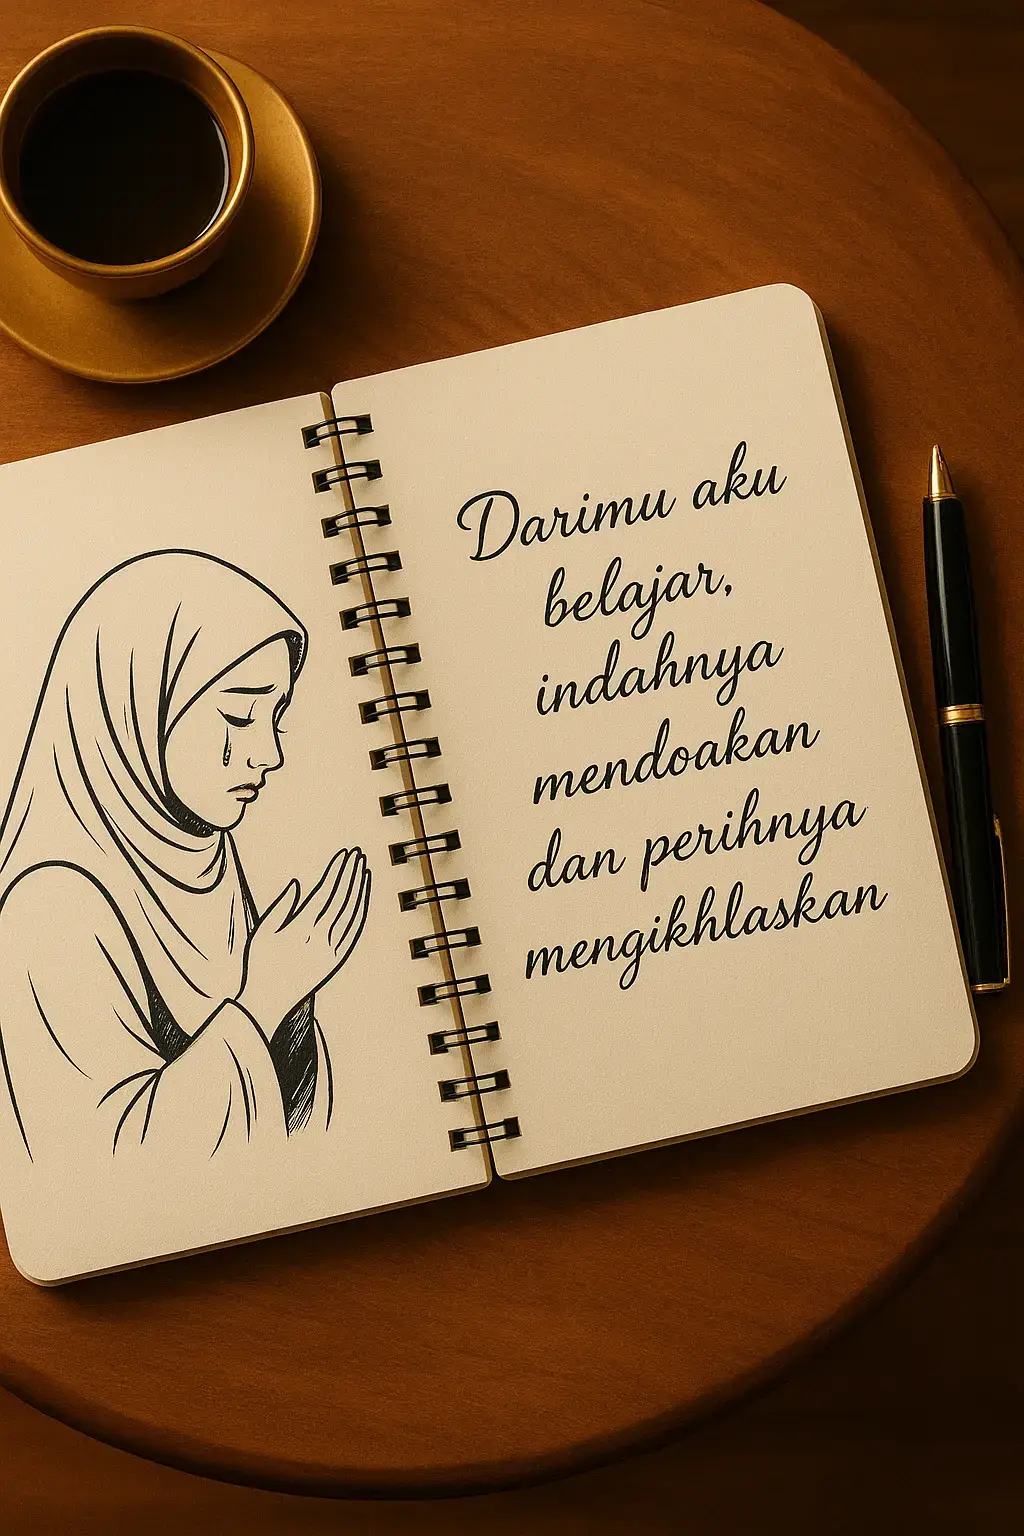 Darimu aku
belajar,
indahnya
mendoakan
dan perihnya
mengikhlaskan